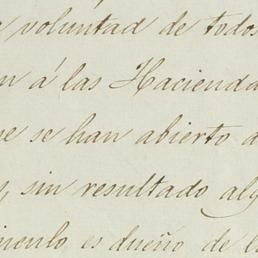 voluntad de todos
á las Hacienda
se han abierto
sin resultado
es dueño de